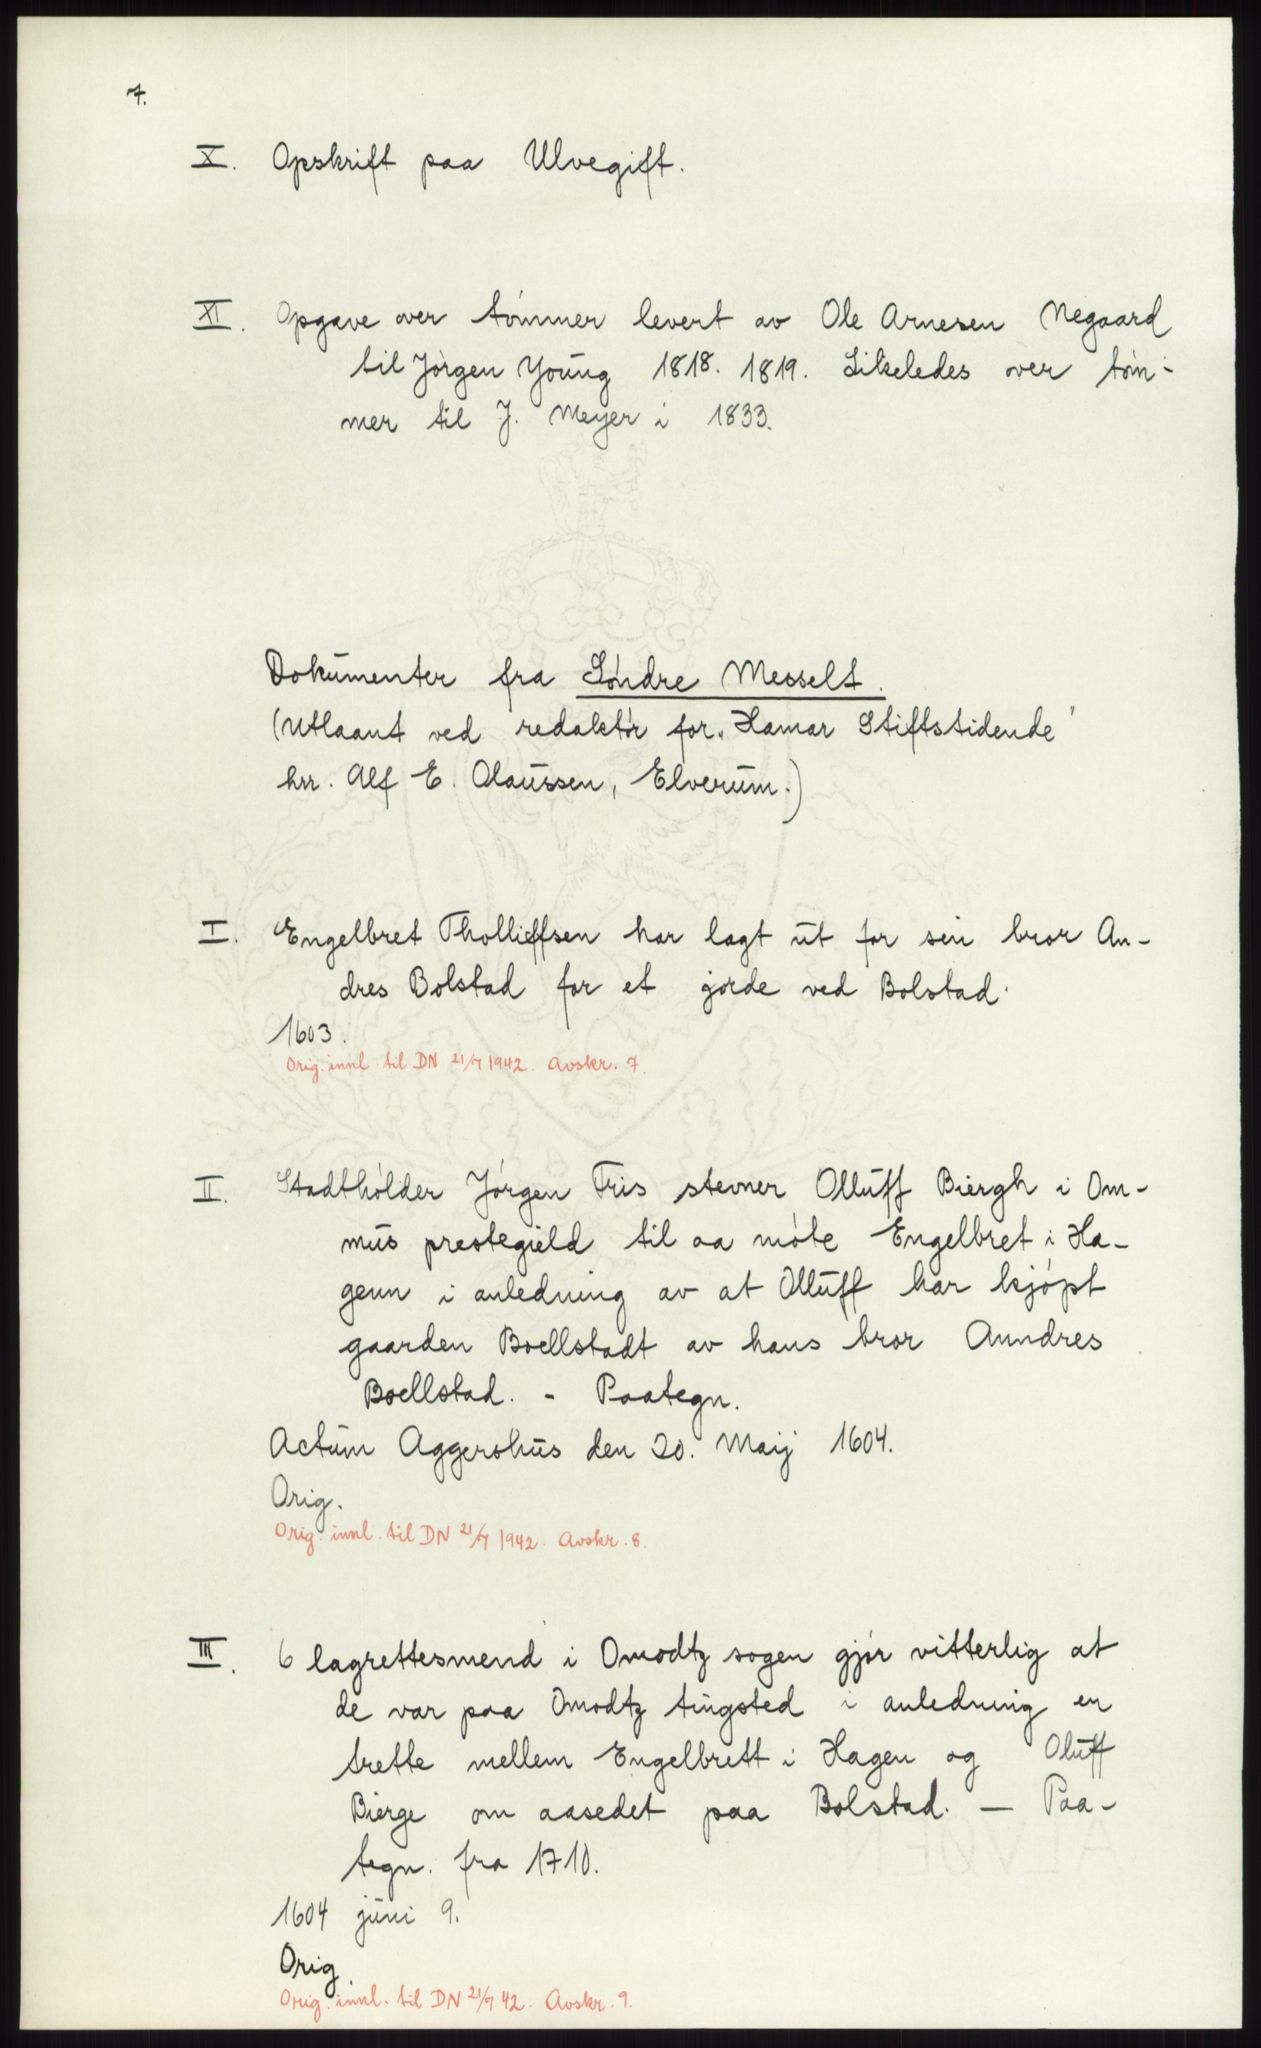 7.
X. Opskrift paa Ulvegift.
XI. Opgave over tømmer levert av Ole Arnesen Negaard
til Jørgen Young 1818. 1819. Likeledes over tøm-
mer til J. Meyer i 1833.
Dokumenter fra Søndre Messelt.
(Utlaant ved redaktør for „Hamar Stiftstidende"
hrr. Alf E. Olaussen, Elverum.)
I. Engelbret Tholliefsen har lagt ut for sin bror An-
dres Bolstad for et jorde ved Bolstad.
1603.
Orig. innl. til DN 21/7 1942. Avskr. 7.
II. Stadtholder Jørgen Friis stevner Olluff Biergh i Om-
mus prestegield til aa møte Engelbret i Ha-
genn i anledning av at Olluff har kjøpt
gaarden Boellstadt av hans bror Anndres
Boellstad. - Paategn.
Actum Aggershus den 20. Maij 1604.
Orig.
Orig. innl. til DN 21/7 1942. Avskr. 8.
III. 6 lagrettesmend i Omodtz sogen gjør vitterlig at
de var paa Omodtz tingsted i anledning en
trette mellem Engelbrett i Hagen og Oluff
Bierge om aasedet paa Bolstad. — Paa-
tegn. fra 1710.
1604 juni 9.
Orig.
Orig. innl. til DN 21/7 42. Avskr. 9.
ALVØEN